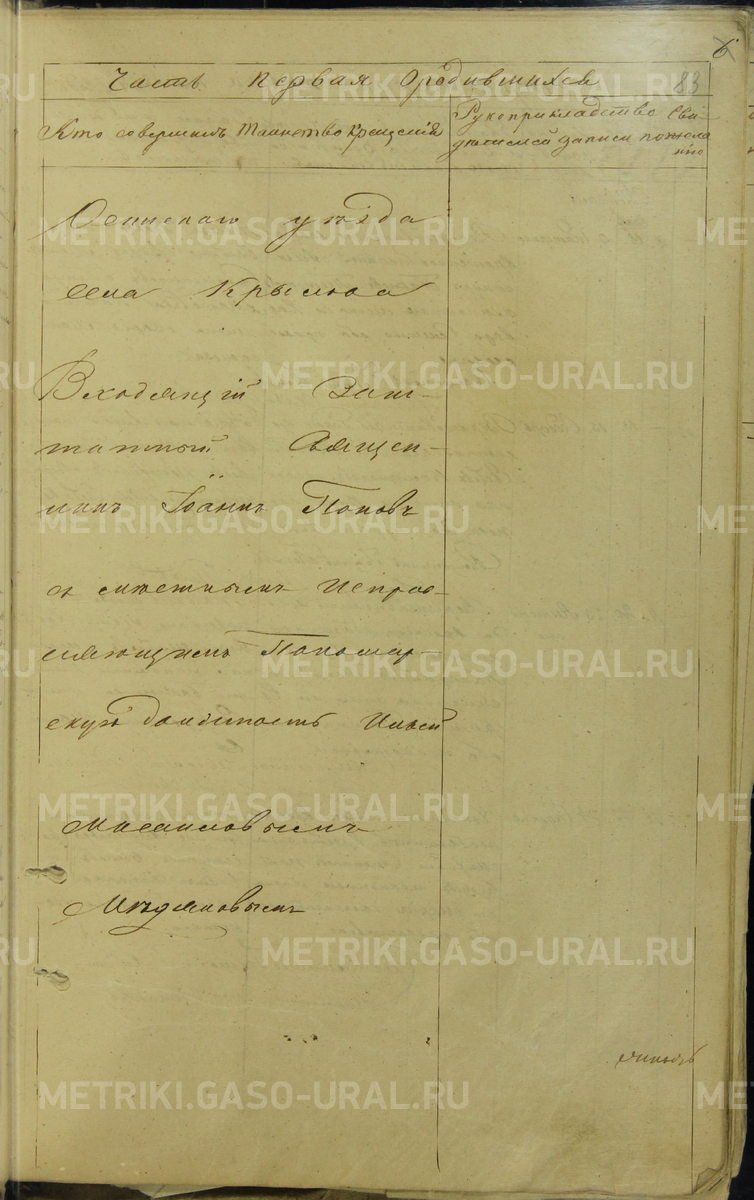 6
83
Часть первая о родившихся
Кто совершилъ таинство крещенія
Рукоприкладство сви-
дѣтелей записи по жела
нію
Осинскаго уѣзда
села Крылова
Входящій Заш-
татный Священ-
никъ Іоаннъ Поповъ
съ Исправ-
ляющимъ Пономар-
скую должность Ильей
METRIKI.GASO-URAL.RU